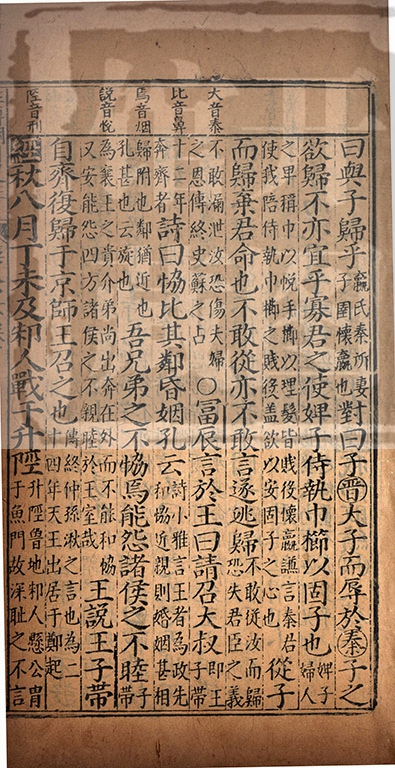 曰與子歸乎嬴氏秦所妻子圉懷嬴也對曰子晉大子而辱於秦子之
欲歸不亦宜乎寡君之使婢子侍執巾櫛以固子也婢子婦人
之卑稱巾以悅手櫛以理髮皆賤役懷嬴謙言秦君
使我陪侍執巾櫛之賤役蓋欲以安固子之心也從子
而歸棄君命也不敢從亦不敢言遂逃歸不敢從汝而歸恐失君臣之義
大音泰
不敢漏泄汝恐傷夫婦
之恩傳終史蘇之占○富辰言於王曰請召大叔即王子帶
比音鼻
十二年奔齊者詩曰恊比其鄰昏姻孔云詩小雅言王者為政先和協近親則婚姻甚相
焉音烟
歸附也鄰猶近也
孔甚也云旋也吾兄弟之不恊焉能怨諸侯之不睦子帶
說音悅
為襄王之貴介弟尚出奔在外而不能和協
又安能怨四方諸侯之不親睦於王室哉王說王子帶
自齊復歸于京師王召之也傳終仲孫湫之言也為二十四年天王出居于鄭起
陘音刑
經秋八月丁未及邾人戰于升陘升陘魯地邾人懸公胄于魚門故深恥之不言